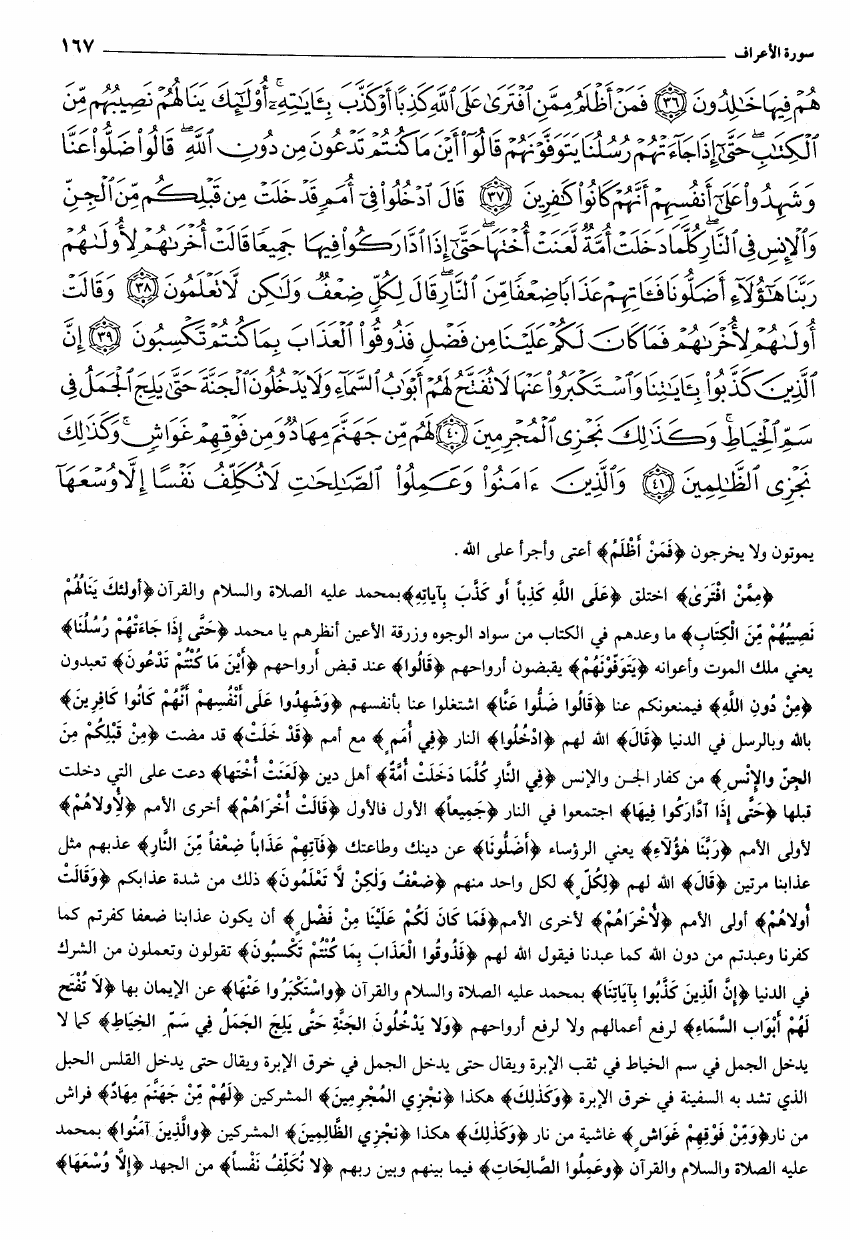 سورة الأعراف ١٦٧
هُمْ فِيهَا خَٰلِدُونَ ٣٦ فَمَنْ أَظْلَمُ مِمَّنِ ٱفْتَرَىٰ عَلَى ٱللَّهِ كَذِبًا أَوْ كَذَّبَ بِـَٔايَٰتِهِۦٓ ۚ أُو۟لَٰٓئِكَ يَنَالُهُمْ نَصِيبُهُم مِّنَ
ٱلْكِتَٰبِ ۖ حَتَّىٰٓ إِذَا جَآءَتْهُمْ رُسُلُنَا يَتَوَفَّوْنَهُمْ قَالُوٓا۟ أَيْنَ مَا كُنتُمْ تَدْعُونَ مِن دُونِ ٱللَّهِ ۖ قَالُوا۟ ضَلُّوا۟ عَنَّا
وَشَهِدُوا۟ عَلَىٰٓ أَنفُسِهِمْ أَنَّهُمْ كَانُوا۟ كَٰفِرِينَ ٣٧ قَالَ ٱدْخُلُوا۟ فِىٓ أُمَمٍ قَدْ خَلَتْ مِن قَبْلِكُم مِّنَ ٱلْجِنِّ
وَٱلْإِنسِ فِى ٱلنَّارِ ۖ كُلَّمَا دَخَلَتْ أُمَّةٌ لَّعَنَتْ أُخْتَهَا ۖ حَتَّىٰٓ إِذَا ٱدَّارَكُوا۟ فِيهَا جَمِيعًا قَالَتْ أُخْرَىٰهُمْ لِأُولَىٰهُمْ
رَبَّنَا هَٰٓؤُلَآءِ أَضَلُّونَا فَـَٔاتِهِمْ عَذَابًا ضِعْفًا مِّنَ ٱلنَّارِ ۖ قَالَ لِكُلٍّ ضِعْفٌ وَلَٰكِن لَّا تَعْلَمُونَ ٣٨ وَقَالَتْ
أُولَىٰهُمْ لِأُخْرَىٰهُمْ فَمَا كَانَ لَكُمْ عَلَيْنَا مِن فَضْلٍ فَذُوقُوا۟ ٱلْعَذَابَ بِمَا كُنتُمْ تَكْسِبُونَ ٣٩ إِنَّ
ٱلَّذِينَ كَذَّبُوا۟ بِـَٔايَٰتِنَا وَٱسْتَكْبَرُوا۟ عَنْهَا لَا تُفَتَّحُ لَهُمْ أَبْوَٰبُ ٱلسَّمَآءِ وَلَا يَدْخُلُونَ ٱلْجَنَّةَ حَتَّىٰ يَلِجَ ٱلْجَمَلُ فِى
سَمِّ ٱلْخِيَاطِ ۚ وَكَذَٰلِكَ نَجْزِى ٱلْمُجْرِمِينَ ٤٠ لَهُم مِّن جَهَنَّمَ مِهَادٌ وَمِن فَوْقِهِمْ غَوَاشٍ ۚ وَكَذَٰلِكَ
نَجْزِى ٱلظَّٰلِمِينَ ٤١ وَٱلَّذِينَ ءَامَنُوا۟ وَعَمِلُوا۟ ٱلصَّٰلِحَٰتِ لَا نُكَلِّفُ نَفْسًا إِلَّا وُسْعَهَآ
يموتون ولا يخرجون ﴿فَمَنْ أَظْلَمُ﴾ أعتى وأجرأ على الله .
﴿مِمَّنْ افْتَرَىٰ﴾ اختلق ﴿عَلَى اللَّهِ كَذِباً أَو كَذَّبَ بِآيَاتِهِ﴾ بمحمد عليه الصلاة والسلام والقرآن ﴿أولئكَ يَنَالُهُمْ
نَصِيبُهُمْ مِّنَ الْكِتَابِ﴾ ما وعدهم في الكتاب من سواد الوجوه وزرقة الأعين أنظرهم يا محمد ﴿حَتَّى إِذَا جَاءَتْهُمْ رُسُلُنَا﴾
يعني ملك الموت وأعوانه ﴿يَتَوَفَّوْنَهُمْ﴾ يقبضون أرواحهم ﴿قَالُوا﴾ عند قبض أرواحهم ﴿أَيْنَ مَا كُنْتُمْ تَدْعُونَ﴾ تعبدون
﴿مِنْ دُونِ اللَّهِ﴾ فيمنعونكم عنا ﴿قَالُوا ضَلُّوا عَنَّا﴾ اشتغلوا عنا بأنفسهم ﴿وَشَهِدُوا عَلَى أَنْفُسِهِمْ أَنَّهُمْ كَانُوا كَافِرِينَ﴾
بالله وبالرسل في الدنيا ﴿قَالَ﴾ الله لهم ﴿ادْخُلُوا﴾ النار ﴿فِي أُمَمٍ﴾ مع أمم ﴿قَدْ خَلَتْ﴾ قد مضت ﴿مِنْ قَبْلِكُمْ مِنَ
الجِنِّ والإِنْسِ﴾ من كفار الجن والإنس ﴿فِي النَّارِ كُلَّمَا دَخَلَتْ أُمَّةٌ﴾ أهل دين ﴿لَعَنَتْ أُخْتَها﴾ دعت على التي دخلت
قبلها ﴿حَتَّى إِذَا آدَّارَكُوا فِيهَا﴾ اجتمعوا في النار ﴿جَمِيعاً﴾ الأول فالأول ﴿قَالَتْ أُخْرَاهُمْ﴾ أخرى الأمم ﴿لأُولاهُمْ﴾
لأولى الأمم ﴿رَبَّنَا هٰؤُلَاءِ﴾ يعني الرؤساء ﴿أَضَلُّونَا﴾ عن دينك وطاعتك ﴿فَآتِهِمْ عَذَاباً ضِعْفاً مِّنَ النَّارِ﴾ عذبهم مثل
عذابنا مرتين ﴿قَالَ﴾ الله لهم ﴿لِكُلٍّ﴾ لكل واحد منهم ﴿ضِعْفٌ وَلَكِنْ لَّا تَعْلَمُونَ﴾ ذلك من شدة عذابكم ﴿وَقَالَتْ
أُولاهُمْ﴾ أولى الأمم ﴿لأُخْرَاهُمْ﴾ لأخرى الأمم ﴿فَمَا كَانَ لَكُمْ عَلَيْنَا مِنْ فَضْلٍ﴾ أن يكون عذابنا ضعفا كفرتم كما
كفرنا وعبدتم من دون الله كما عبدنا فيقول الله لهم ﴿فَذُوقُوا الْعَذَابَ بِمَا كُنْتُمْ تَكْسِبُونَ﴾ تقولون وتعملون من الشرك
في الدنيا ﴿إِنَّ الَّذِينَ كَذَّبُوا بِآيَاتِنَا﴾ بمحمد عليه الصلاة والسلام والقرآن ﴿واسْتَكْبَرُوا عَنْهَا﴾ عن الإيمان بها ﴿لَا تُفْتَح
لَهُمْ أَبْوَاب السَّمَاءِ﴾ لرفع أعمالهم ولا لرفع أرواحهم ﴿وَلَا يَدْخُلُونَ الجَنَّةَ حَتَّى يَلِجَ الجَمَلُ فِي سَمِّ الخِيَاطِ﴾ كما لا
يدخل الجمل في سم الخياط في ثقب الإبرة ويقال حتى يدخل الجمل في خرق الإبرة ويقال حتى يدخل القلس الحبل
الذي تشد به السفينة في خرق الإبرة ﴿وَكَذَلِكَ﴾ هكذا ﴿نَجْزِي المُجْرِمِينَ﴾ المشركين ﴿لَهُمْ مِّنْ جَهَنَّمَ مِهَادٌ﴾ فراش
من نار ﴿وَمِّنْ فَوْقِهِمْ غَوَاشٍ﴾ غاشية من نار ﴿وَكَذَلِكَ﴾ هكذا ﴿نَجْزِي الظَّالِمِينَ﴾ المشركين ﴿والَّذِينَ آمَنُوا﴾ بمحمد
عليه الصلاة والسلام والقرآن ﴿وعَمِلُوا الصَّالِحَاتِ﴾ فيما بينهم وبين ربهم ﴿لا نُكَلِّفُ نَفْساً﴾ من الجهد ﴿إِلَّا وُسْعَهَا﴾